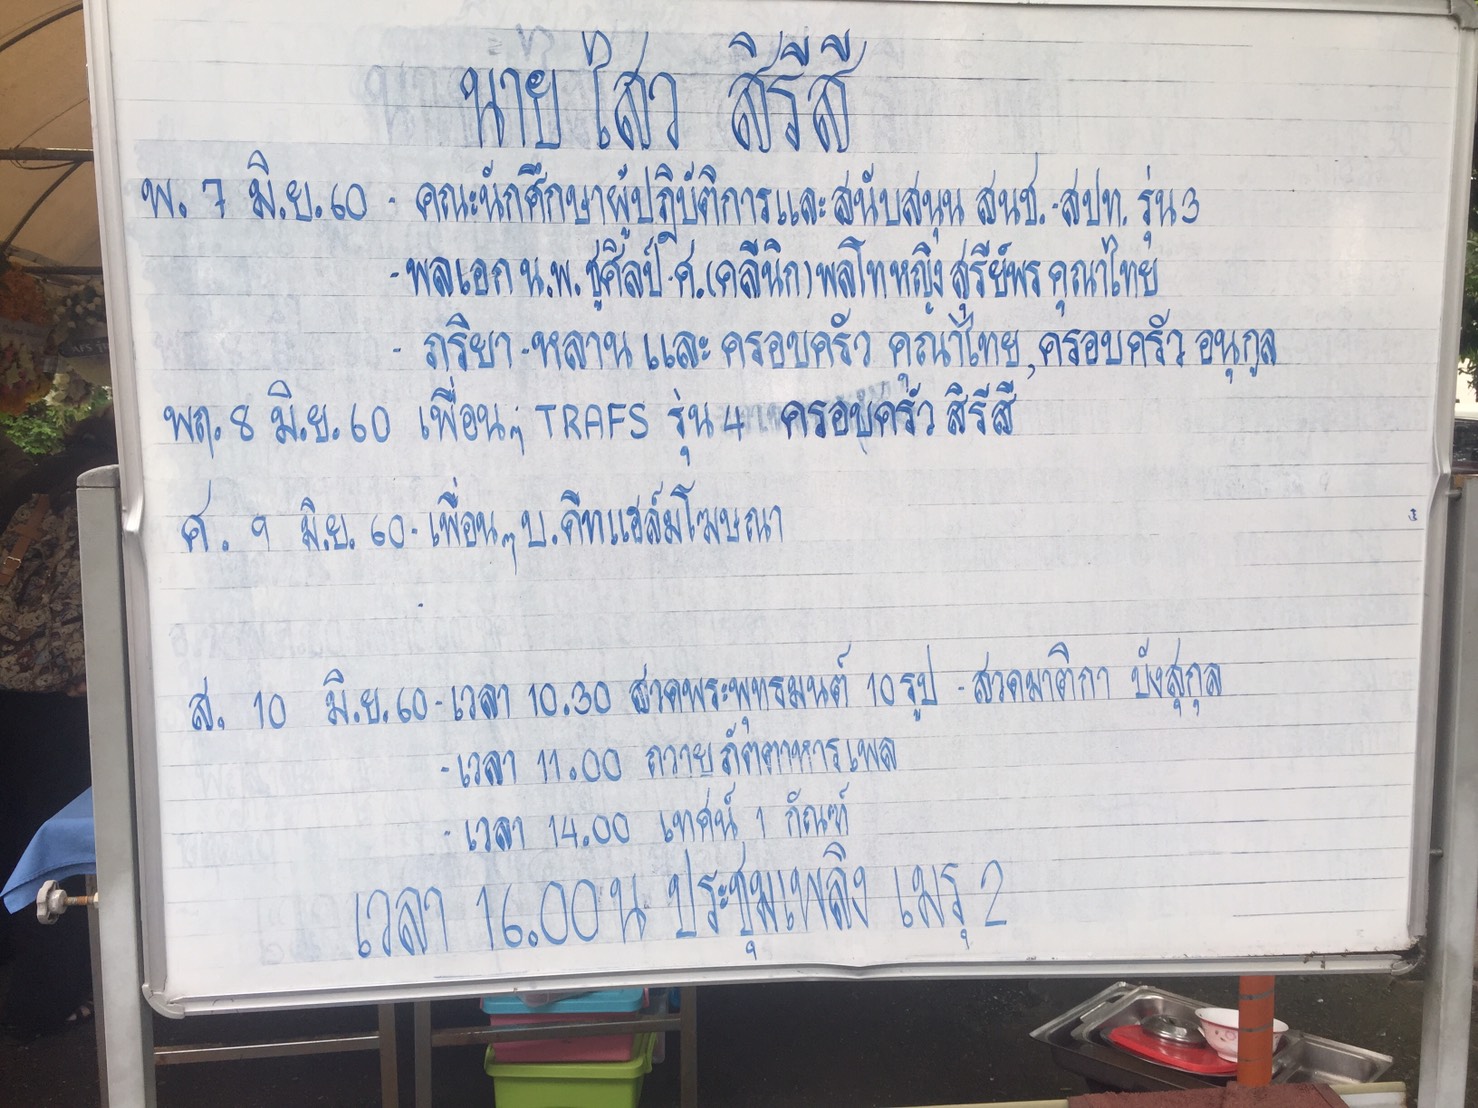 นาย ไสว สิริสี
พ. 7 มิ.ย. 60 - คณะนักศึกษาผู้ปฏิบัติการและสนับสนุน สนช.-สปท. รุ่น 3
- พลเอก น.พ. ชูศิลป์-ศ.(คลีนิก) พลโทหญิง สุรีย์พร คุณาไทย
- ภริยา-หลาน และ ครอบครัว คุณาไทย, ครอบครัว อนุกูล
พฤ. 8 มิ.ย. 60 เพื่อนๆ TRAFS รุ่น 4 ครอบครัว สิริสี
ศ. 9 มิ.ย. 60 - เพื่อนๆ บ. คีทแฮล์มโฆษณา
ส. 10 มิ.ย. 60 - เวลา 10.30 สวดพระพุทธมนต์ 10 รูป - สวดมาติกา บังสุกุล
- เวลา 11.00 ถวายภัตตาหารเพล
- เวลา 14.00 เทศน์ 1 กัณฑ์
เวลา 16.00 น ประชุมเพลิง เมรุ 2